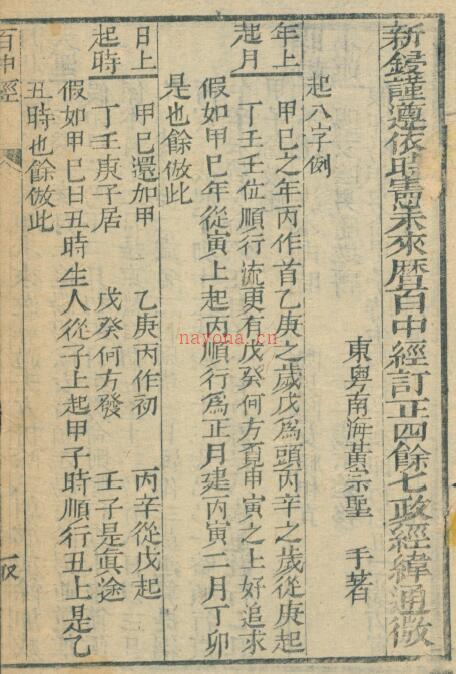 新鋟謹遵依時憲未來曆百中經訂正四餘七政經緯通微
東粤南海黃宗聖　手著
起八字例
年上起月
甲巳之年丙作首乙庚之歲戊爲頭丙辛之歲從庚起
丁壬壬位順行流更有戊癸何方覔甲寅之上好追求
假如甲巳年從寅上起丙順行爲正月建丙寅二月丁卯
是也餘倣此
日上起時
甲巳還如甲　乙庚丙作初　丙辛從戊起
丁壬庚子居　戊癸何方發　壬子是眞途
假如甲巳日丑時生人從子上起甲子時順行丑上是乙
丑時也餘倣此
百中經
nayona.cn